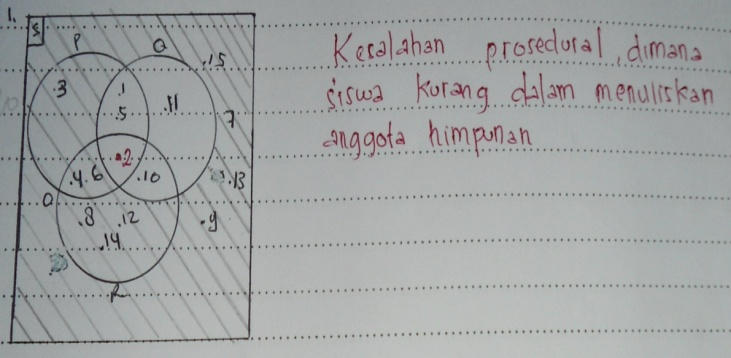 1.
S
P Q .15
.3 .1 .11
.5 7
.2
.4 .6 .10 .13
.8 .12 .9
.14
R
Kesalahan prosedural, dimana
siswa kurang dalam menuliskan
anggota himpunan